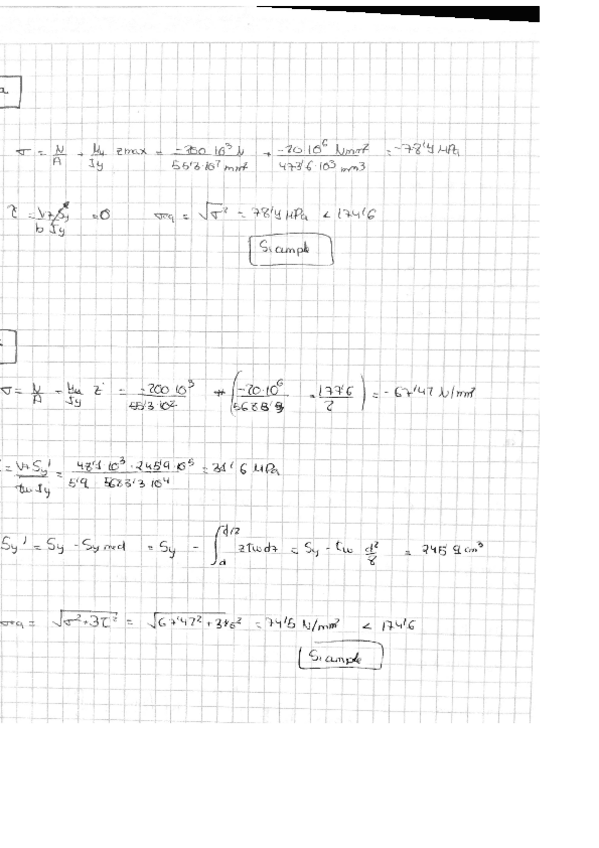 a
σ = N/A + My/Iy zmax = -200·10³ N / 55'3·10² mm² + -20·10⁶ Nmm² / 473'6·10³ mm3 = -78'4 MPa
τ = Vz Sy* / b Iy = 0 σeq = √σ² = 78'4 MPa < 174'6
Si cumple
σ = N/A + My/Iy z = -200·10³ / 55'3·10² + ( -20·10⁶ / · 177'6 / 2 ) = -67'47 N/mm²
= Vz Sy' / tw Iy = 10³ · 245'9·10³ / 5'9 10⁴ = 31'6 MPa
Sy' = Sy - Sy med = Sy - ∫ d/2 z tw dz = Sy - tw d²/8 = 245'9 cm³
= √σ²+3τ² = √67'47²+ = N/mm² < 174'6
Si cumple